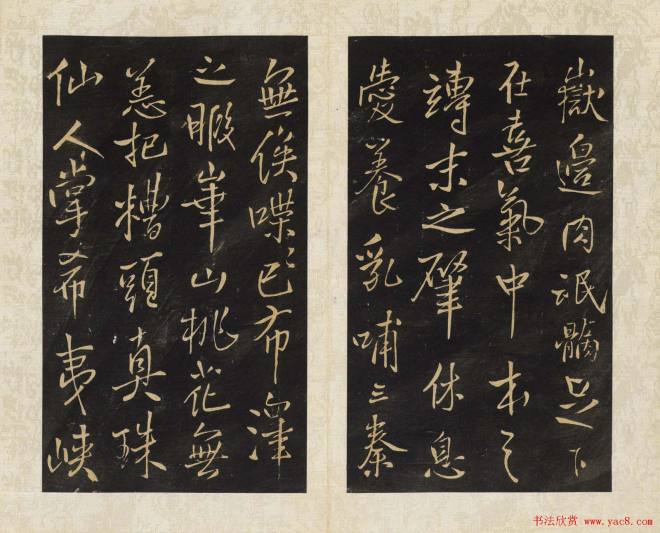 嶽邊肉泯髓足下
在喜氣中本之
溥末之肇休息
愛養乳哺三秦
無俟喋已布澤
之暇華山桃花無
恙把糟頭真珠
仙人掌希夷峽
书法欣赏 www.yac8.com